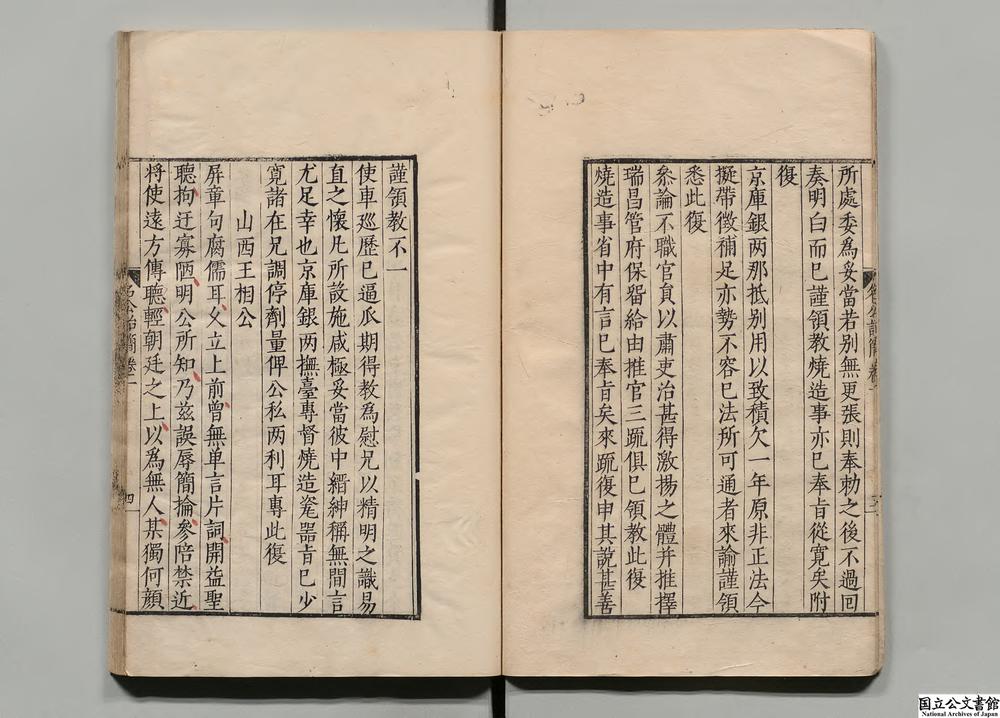 所處委為妥當若别無更張則奉勅之後不過回
奏明白而已謹領教燒造事亦已奉旨從寬矣附
復
京庫銀两那抵别用以致積欠一年原非正法今
擬帶徵補足亦勢不容已法所可通者來諭謹領
悉此復
叅論不職官負以肅吏治甚得激揚之體并推擇
瑞昌管府保畱給由推官三䟽俱已領教此復
燒造事省中有言已奉旨矣來䟽復申其説甚善
謹領教不一
使車巡歷已逼瓜期得教為慰兄以精明之識易
直之懷凡所設施咸極妥當彼中縉紳稱無間言
尤足幸也京庫銀两撫臺專督燒造瓷器旨已少
寛諸在兄調停劑量俾公私两利耳專此復
山西王相公
屛章句腐儒耳乆立上前曾無单言片詞開益聖
聽拘迂寡陋明公所知乃兹誤辱簡掄叅陪禁近
將使遠方傳聽輕朝廷之上以為無人某獨何顔
国立公文書館
National Archives of Japan